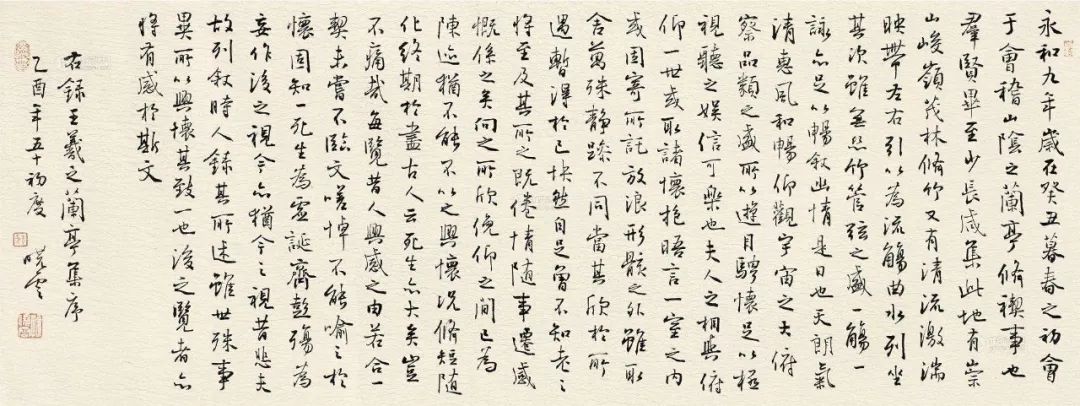 永和九年歲在癸丑暮春之初會
于會稽山陰之蘭亭脩禊事也
羣賢畢至少長咸集此地有崇
山峻嶺茂林脩竹又有清流激湍
映帶左右引以為流觴曲水列坐
其次雖無絲竹管弦之盛一觴一
詠亦足以暢敘幽情是日也天朗氣
清惠風和暢仰觀宇宙之大俯
察品類之盛所以遊目騁懷足以極
視聽之娛信可樂也夫人之相與俯
仰一世或取諸懷抱晤言一室之內
或因寄所託放浪形骸之外雖取
舍萬殊靜躁不同當其欣於所
遇暫得於己快然自足曾不知老之
將至及其所之既倦情隨事遷感
慨係之矣向之所欣俛仰之間已為
陳迹猶不能不以之興懷況脩短隨
化終期於盡古人云死生亦大矣豈
不痛哉每覽昔人興感之由若合一
契未嘗不臨文嗟悼不能喻之於
懷固知一死生為虛誕齊彭殤為
妄作後之視今亦猶今之視昔悲夫
故列敘時人錄其所述雖世殊事
異所以興懷其致一也後之覽者亦
將有感於斯文
右錄王羲之蘭亭集序
乙酉年五十初度